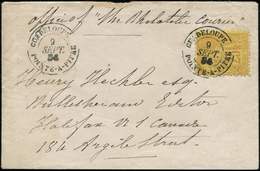 office of "The Philatelic Courier"
GUADELOUPE
9
SEPT.
POINTE-A-PITRE
GUADELOUPE
9
SEPT.
POINTE-A-PITRE
Henry Hechler esq.
Editor
Halifax N S Canada
184 Argyle Street.